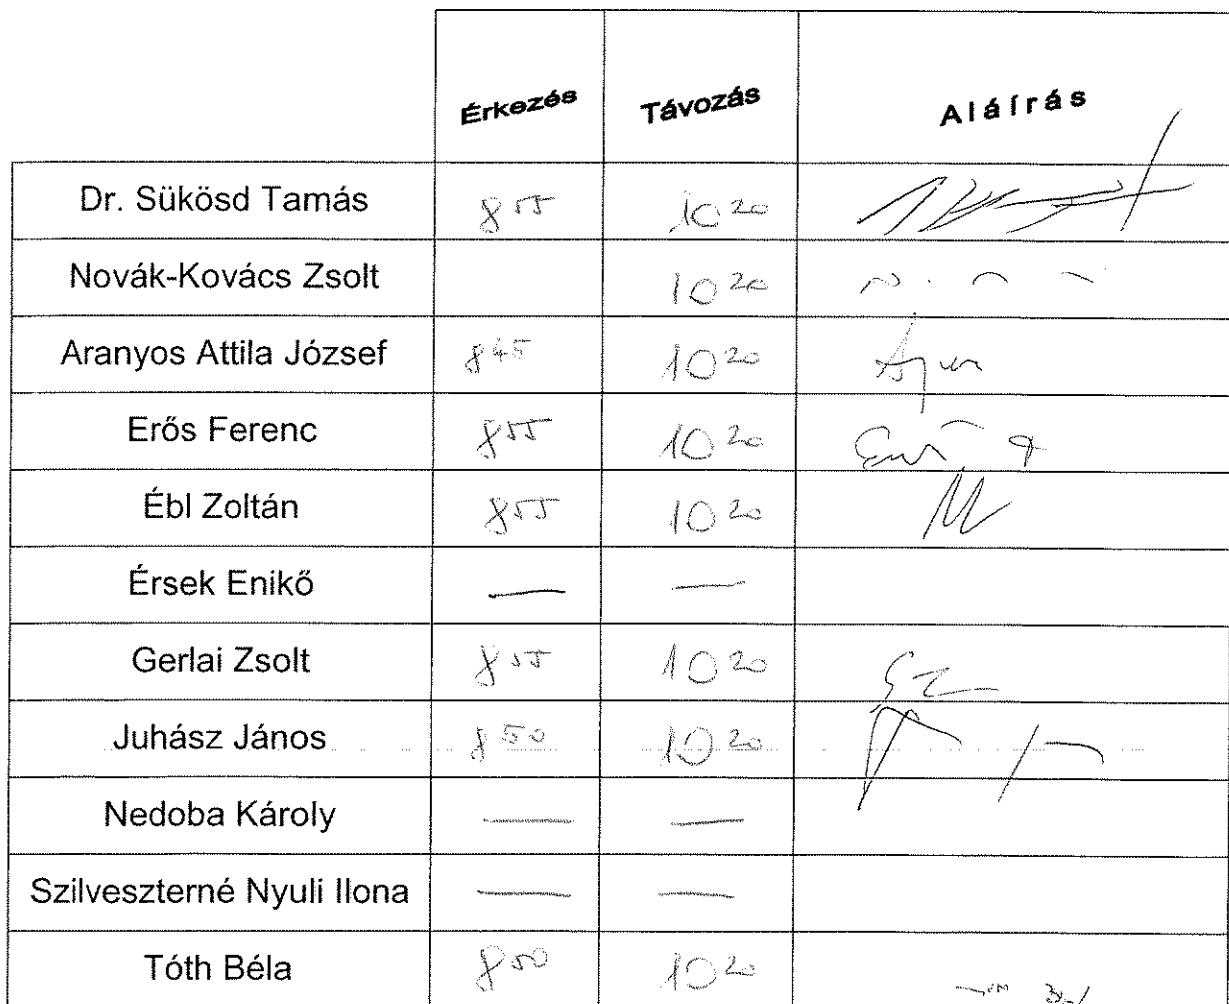 Érkezés Távozás Aláírás
Dr. Sükösd Tamás 8 55 10 20
Novák-Kovács Zsolt 10 20
Aranyos Attila József 8 45 10 20
Erős Ferenc 8 55 10 20
Ébl Zoltán 8 55 10 20
Érsek Enikő — —
Gerlai Zsolt 8 55 10 20
Juhász János 8 50 10 20
Nedoba Károly — —
Szilveszterné Nyuli Ilona — —
Tóth Béla 8 50 10 20